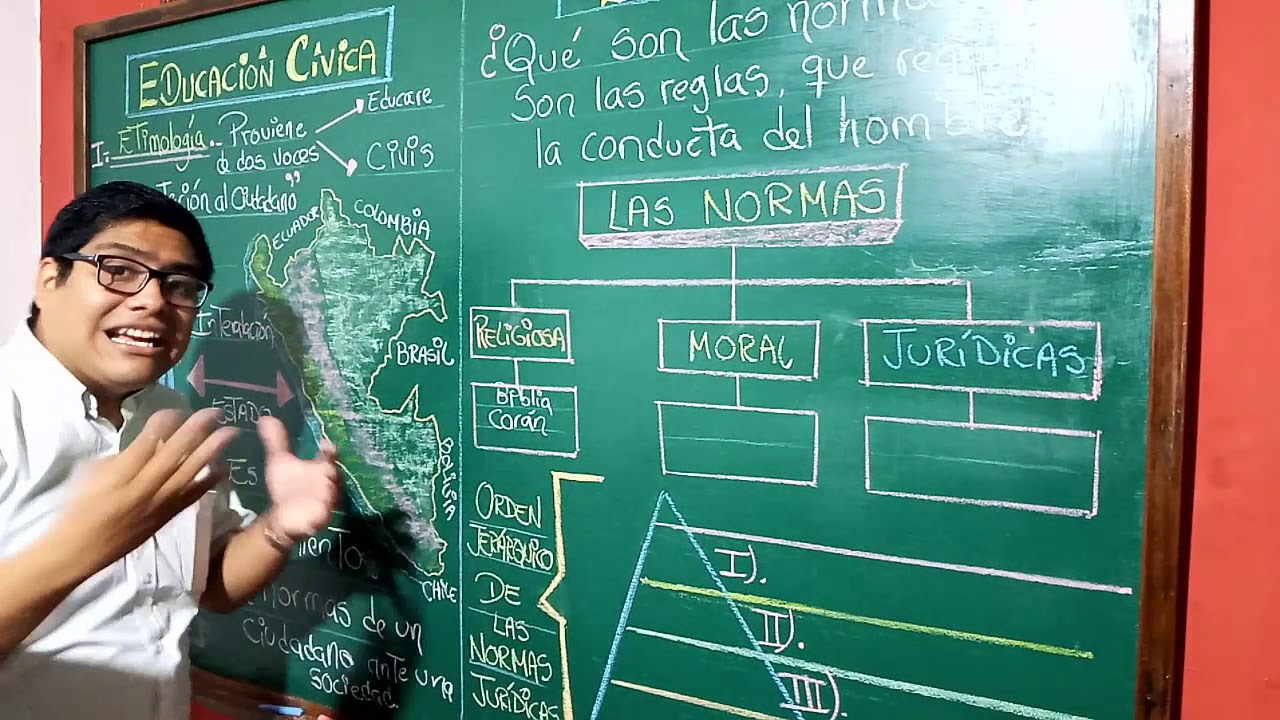 EDUCACIÓN CÍVICA
I. ETimología.. Proviene
de dos voces
Educare
Civis
al Ciudadano"
ECUADOR
COLOMBIA
BRASIL
BOLIVIA
CHILE
Interelación
ESTADO
Es
normas de un
Ciudadano ante una
sociedad.
¿Qué son las
Son las reglas, que
la conducta del hombre
LAS NORMAS
RELIGIOSA
MORAL
JURÍDICAS
Bíblia
Corán
ORDEN
JERÁRQUICO
DE
LAS
NORMAS
JURÍDICAS
I).
II).
III).